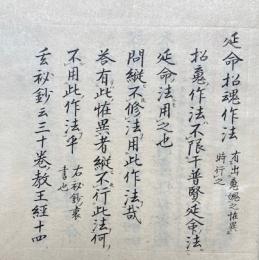 延命招魂作法 有出魂魄之恠異
時行之
招魂作法不限于普賢延命法
延命法用之也
問縦不修法用此作法哉
荅有此恠異者縦不行此法何
不用此作法乎 右秘鈔裏
書也
玄秘鈔云三十卷教王經十四